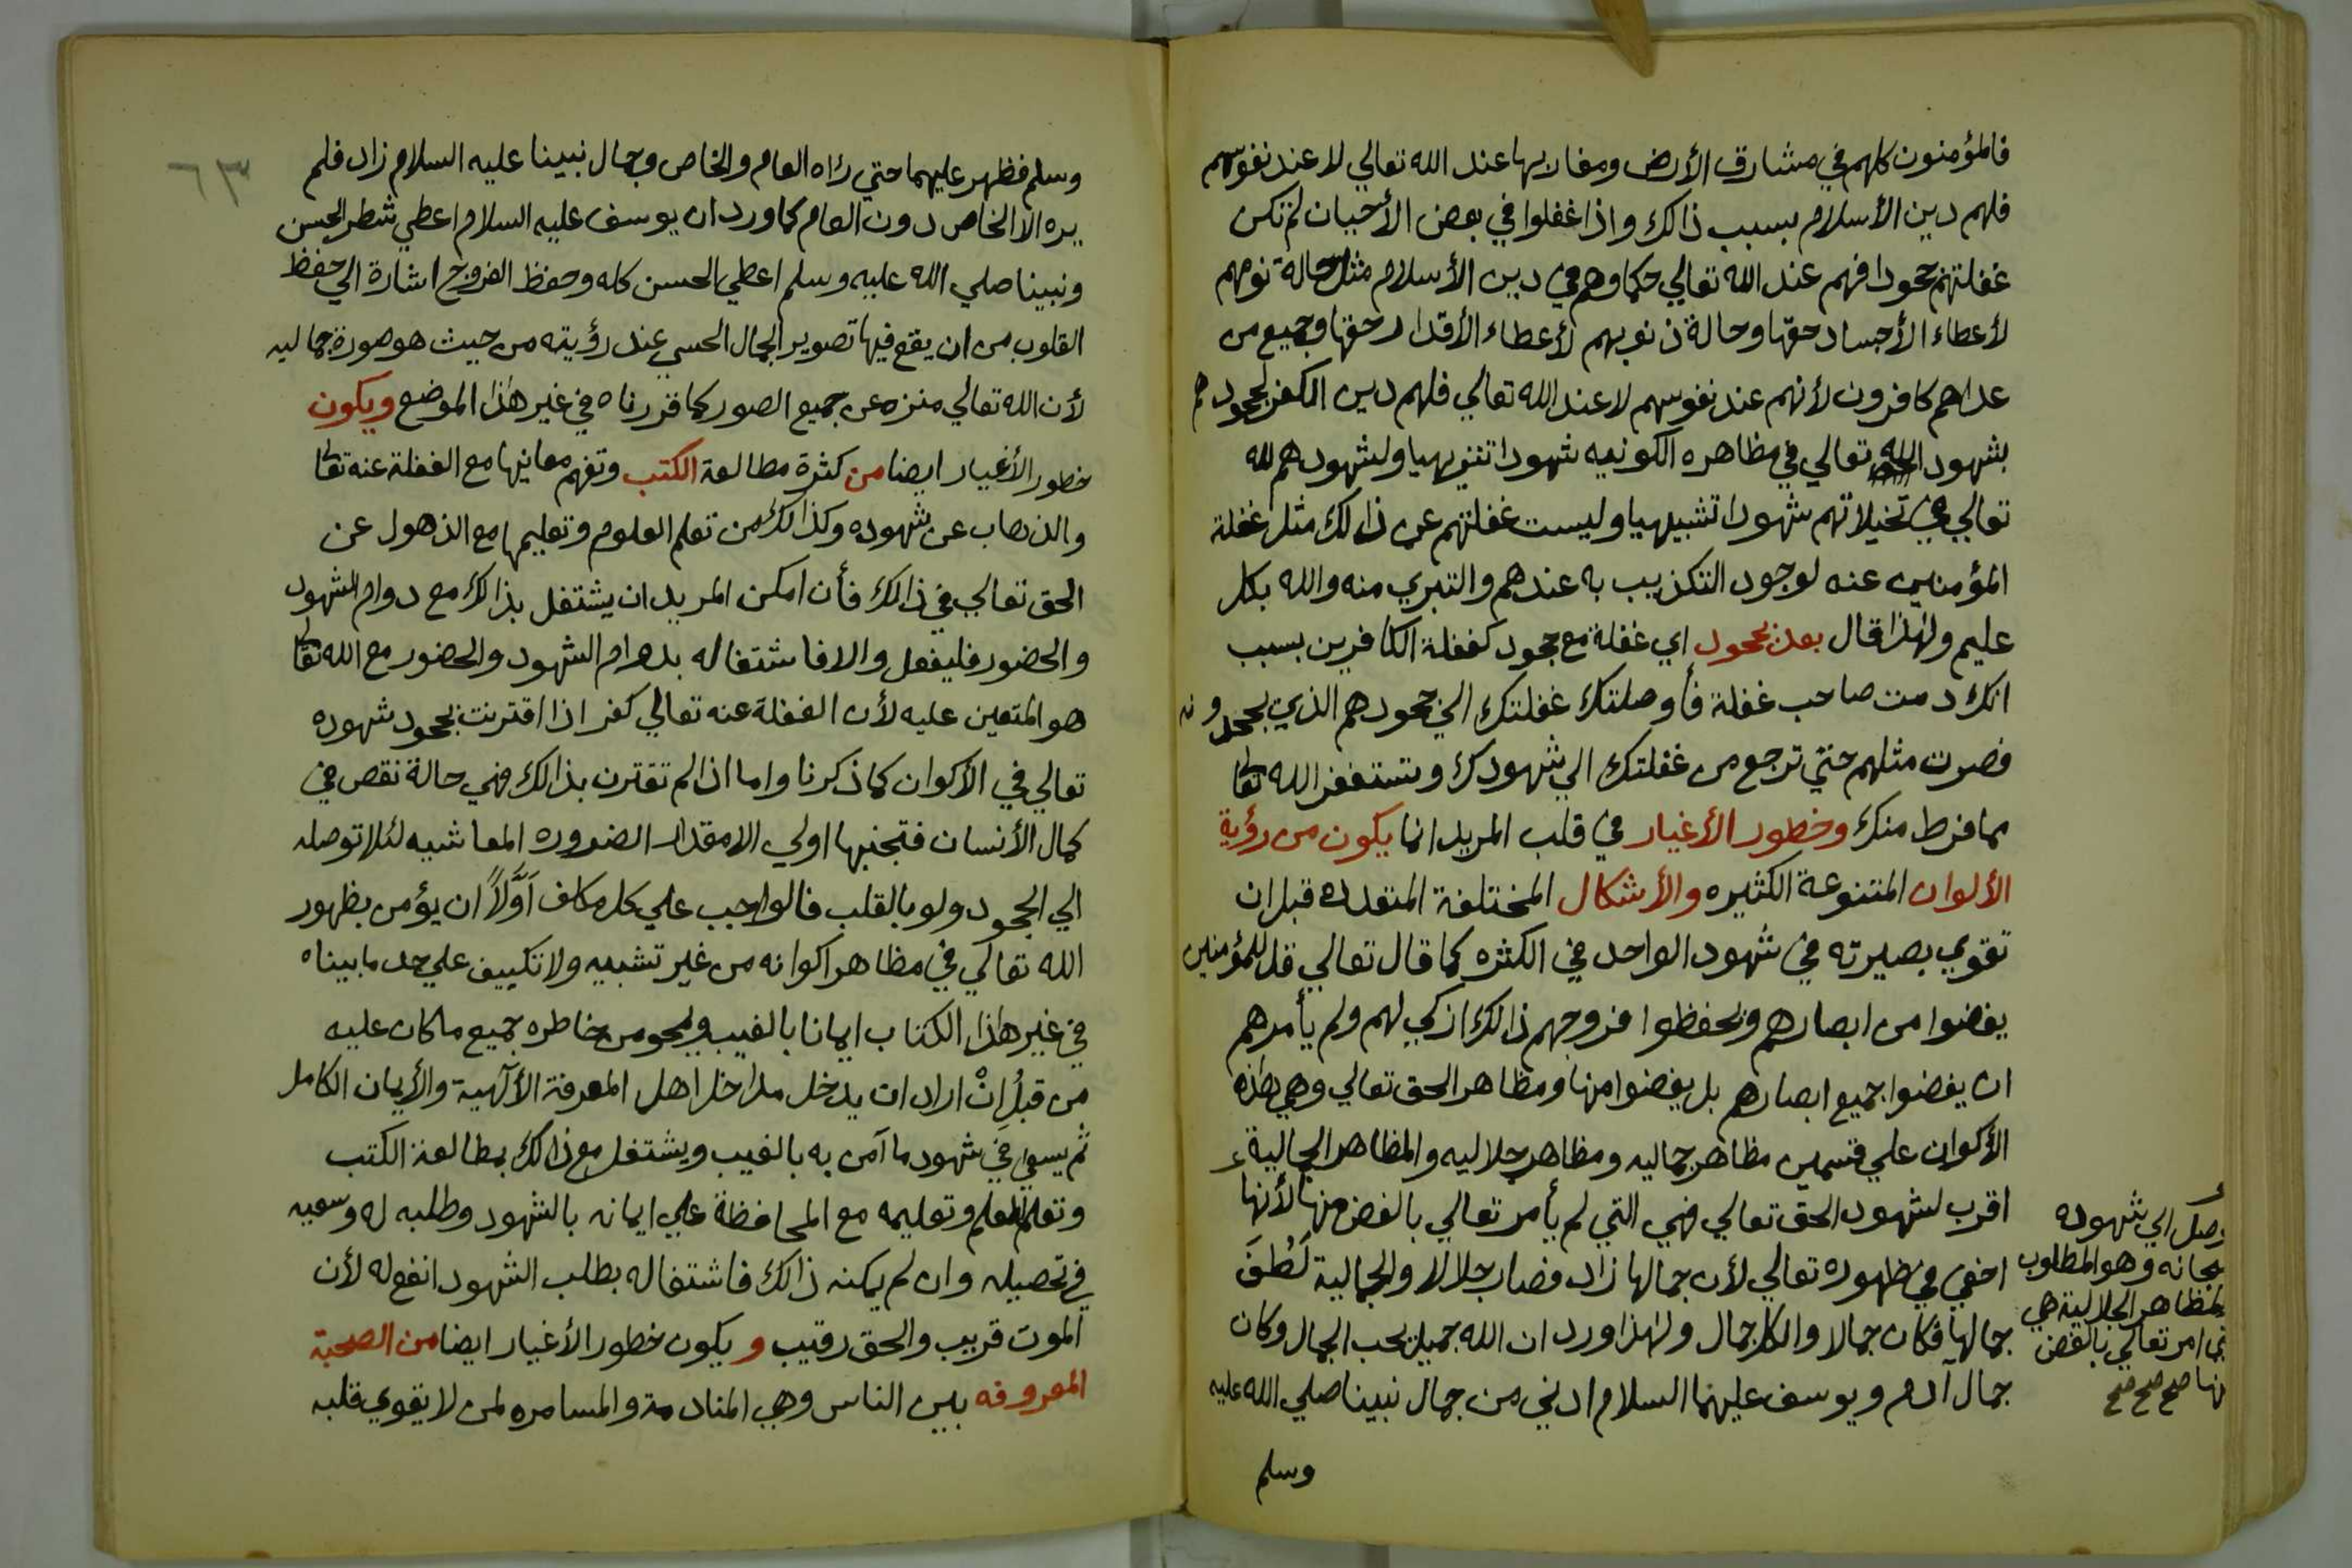 فالمؤمنون كلهم في مشارق الأرض ومغاربها عند الله تعالي لا عند نفوسهم
فلهم دين الأسلام بسبب ذالك واذا غفلوا في بعض الأحيان لم تكن
غفلتهم جحودا فهم عند الله تعالي حكما وهم في دين الأسلام مثل حالة نومهم
لأعطاء الأجساد حقها وحالة ذنوبهم لأعطاء الأقدار حقها وجميع من
عداهم كافرون لأنهم عند نفوسهم لا عند الله تعالي فلهم دين الكفر لجحودهم
بشهود الله تعالي في مظاهره الكونيه شهودا تنزيهيا ولشهودهم لله
تعالي في تخيلاتهم شهودا تشبيهيا وليست غفلتهم عن ذالك مثل غفلة
المؤمنين عنه لوجود التكذيب به عندهم والتبري منه والله بكل
عليم ولهذا قال بعد جحود اي غفلة مع جحود كغفلة الكافرين بسبب
انك دمت صاحب غفلة فأوصلتك غفلتك الي جحودهم الذي يجحدونه
فصرت مثلهم حتي ترجع من غفلتك الي شهودك وتستغفر الله تعا
مما فرط منك وخطور الأغيار في قلب المريد انما يكون من رؤية
الألوان المتنوعة الكثيره والأشكال المختلفة المتعدده قبل ان
تقوي بصيرته في شهود الواحد في الكثره كما قال تعالي قل للمؤمنين
يغضوا من ابصارهم ويحفظوا فروجهم ذالك ازكي لهم ولم يأمرهم
ان يغضوا جميع ابصارهم بل يغضوا منها ومظاهر الحق تعالي وهي هذه
الأكوان علي قسمين مظاهر جماليه ومظاهر جلاليه والمظاهر الجمالية
اقرب لشهود الحق تعالي فهي التي لم يأمر تعالي بالغض منها لأنها
اخفي في ظهوره تعالي لأن جمالها زاد فصار جلالا والجمالية لَطُفَ
جمالها فكان جمالا والكل جمال ولهذا ورد ان الله جميل يحب الجمال وكان
جمال آدم ويوسف عليهما السلام ادني من جمال نبينا صلي الله عليه
وسلم
الي شهوده
وهو المطلوب
الجلالية هي
امر تعالي بالغض
صح صح صح
٦٣
وسلم فظهر عليهما حتي رآه العام والخاص وجمال نبينا عليه السلام زاد فلم
يره الا الخاص دون العام كما ورد ان يوسف عليه السلام اعطي شطر الحسن
ونبينا صلي الله عليه وسلم اعطي الحسن كله وحفظ الفروج اشارة الي حفظ
القلوب من ان يقع فيها تصوير الجمال الحسي عند رؤيته من حيث هو صورة جماليه
لأن الله تعالي منزه عن جميع الصور كما قررناه في غير هذا الموضع ويكون
خطور الأغيار ايضا من كثرة مطالعة الكتب وتفهم معانيها مع الغفلة عنه تعا
والذهاب عن شهوده وكذالك من تعلم العلوم وتعليمها مع الذهول عن
الحق تعالي في ذالك فأن امكن المريد ان يشتغل بذالك مع دوام الشهود
والحضور فليفعل والا فاشتغاله بدوام الشهود والحضور مع الله تعا
هو المتعين عليه لأن الغفلة عنه تعالي كفر اذا اقترنت بجحود شهوده
تعالي في الأكوان كما ذكرنا واما اذا لم تقترن بذالك فهي حالة نقص في
كمال الأنسان فتجنبها اولي الا مقدار الضروره المعاشيه لئلا توصله
الي الجحود ولو بالقلب فالواجب علي كل مكلف أَوَّلاً ان يؤمن بظهور
الله تعالي في مظاهر اكوانه من غير تشبيه ولا تكييف علي حد ما بيناه
في غير هذا الكتاب ايمانا بالغيب ويمحو من خاطره جميع ما كان عليه
من قبلُ إنْ اراد ان يدخل مداخل اهل المعرفة الألٓهية والأيمان الكامل
ثم يسعي في شهود ما آمن به بالغيب ويشتغل مع ذالك بمطالعة الكتب
وتعلم العلم وتعليمه مع المحافظة علي ايمانه بالشهود وطلبه له وسعيه
في تحصيله وان لم يمكنه ذالك فاشتغاله بطلب الشهود انفع له لأن
الموت قريب والحق رقيب و يكون خطور الأغيار ايضا من الصحبة
المعروفه بين الناس وهي المنادمة والمسامره لمن لا يقوي قلبه